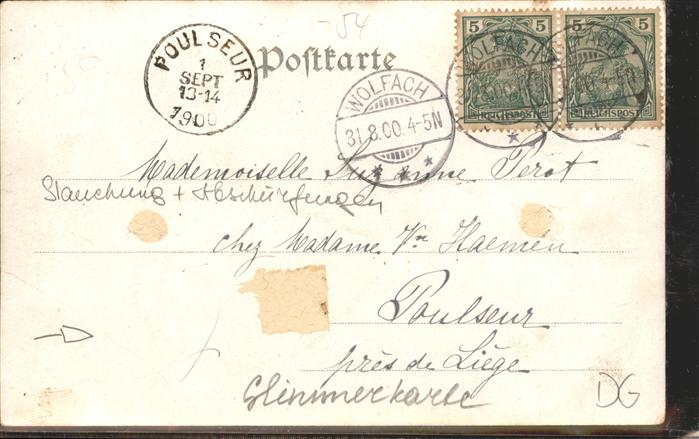 -54
5 5
REICHSPOST REICHSPOST
WOLFACH
POULSEUR
1
SEPT
13-14
1900
Postkarte
WOLFACH
31.8.00.4-5N
Mademoiselle Suzanne Perot
Stauchung + Abschürfungen
chez Madame Vn Haemen
Poulseur
près de Liège
Glimmerkarte
DG